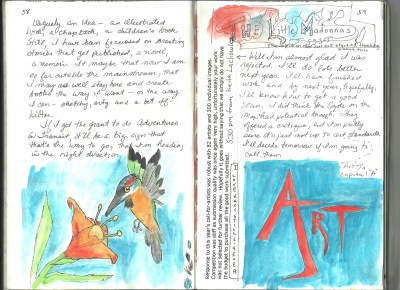 58
Vaguely an idea – an illustrated
book, a chapbook, a children's book
Still, I have been focused on creating
stories that get published, a novel,
a memoir. It maybe that now I am
so far outside the mainstream, that
I may as well stay here and create
books the way I want – in the way
I can – sketchy, arty and a bit off
kilter.
If I get the grant to do Adventures
in Transit, it'll be a big sign that
that's the way to go, that I'm heading
in the right direction.
59
THE Little Madonnas
Well I'm almost glad it was
rejected. I'll do lots better
next year. I'll have finished
work and by next year, hopefully,
I'll know how to get a good
scan. I did think the Goats on the
Map had potential though. They
offered a critique, but I'm pretty
sure it's just not up to art standards.
I'll decide tomorrow if I'm going to
call them.
"Art" a
capital "A"
ART
Response to this year's call-for-artists was robust with 82 artists and 320 individual images.
Competition was stiff as submission quality was once again very high, unfortunately your work
was not selected for further review. Hopefully it goes without saying that we simply do not have
the budget to purchase all the good work submitted.